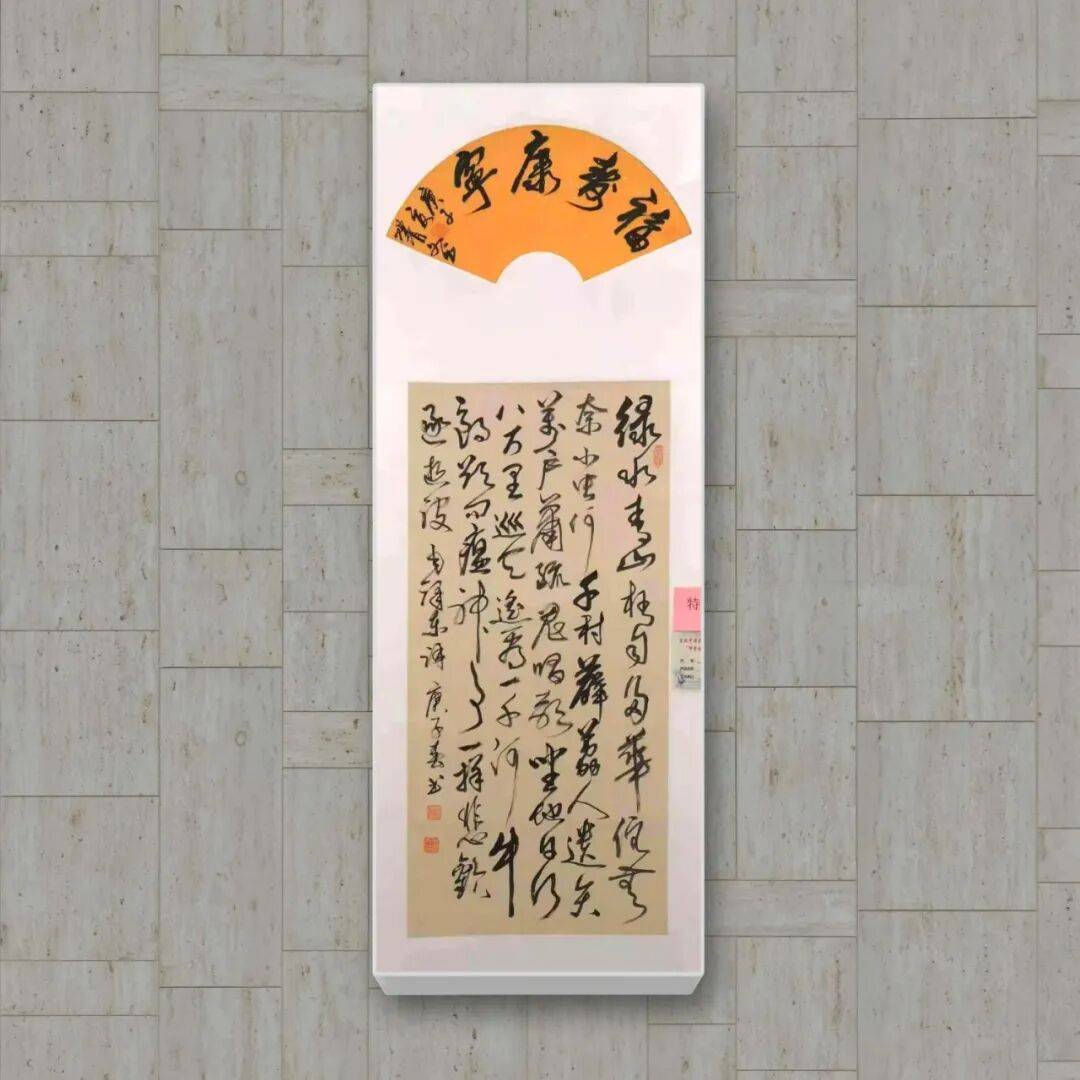 福壽康寧
庚子
绿水青山枉自多華佗無
奈小虫何千村薜荔人遗矢
萬户蕭疏鬼唱歌坐地日行
八万里巡天遥看一千河牛
郎欲问瘟神事一样悲歡
逐逝波 毛泽东詩 庚子春书
特